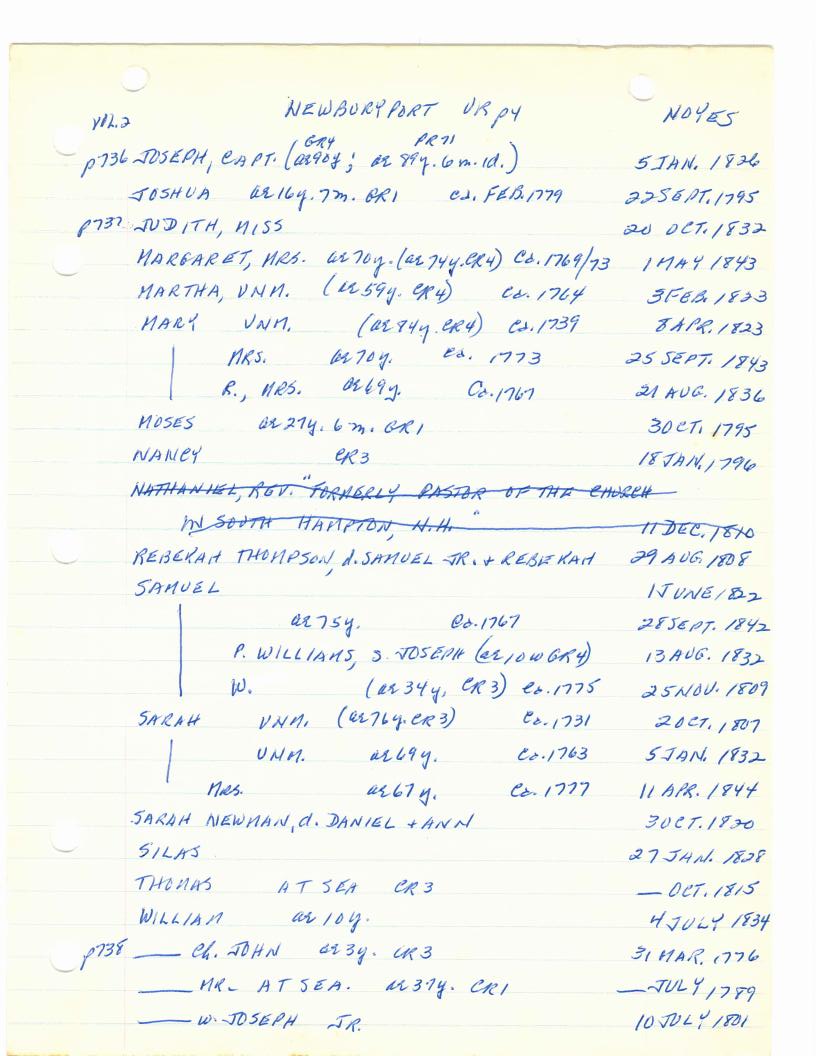 VOL.2 NEWBURYPORT VR p4 NOYES
GR4 PR71
p736 JOSEPH, CAPT. (ae 90y; ae 89y. 6m. 1d.) 5 JAN. 1826
JOSHUA ae 16y. 7m. GR1 Ca. FEB. 1779 22 SEPT. 1795
p737 JUDITH, MISS 20 OCT. 1832
MARGARET, MRS. ae 70y. (ae 74y. CR4) Ca. 1769/73 1 MAY 1843
MARTHA, UNM. (ae 59y. CR4) Ca. 1764 3 FEB. 1823
MARY UNM. (ae 84y. CR4) Ca. 1739 8 APR. 1823
MRS. ae 70y. Ca. 1773 25 SEPT. 1843
R., MRS. ae 69y. Ca. 1767 21 AUG. 1836
MOSES ae 27y. 6m. GR1 3 OCT. 1795
NANCY CR3 18 JAN. 1796
NATHANIEL, REV. "FORMERLY PASTOR OF THE CHURCH
IN SOUTH HAMPTON, N.H." 11 DEC. 1810
REBEKAH THOMPSON, d. SAMUEL JR. + REBEKAH 29 AUG. 1808
SAMUEL 1 JUNE 1822
ae 75y. Ca. 1767 28 SEPT. 1842
P. WILLIAMS, S. JOSEPH (ae 10w GR4) 13 AUG. 1832
W. (ae 34y, CR3) Ca. 1775 25 NOV. 1809
SARAH UNM. (ae 76y. CR3) Ca. 1731 2 OCT. 1807
UNM. ae 69y. Ca. 1763 5 JAN. 1832
MRS. ae 67y. Ca. 1777 11 APR. 1844
SARAH NEWMAN, d. DANIEL + ANN 3 OCT. 1820
SILAS 27 JAN. 1828
THOMAS AT SEA CR3 — OCT. 1815
WILLIAM ae 10y. 4 JULY 1834
p738 — Ch. JOHN ae 3y. CR3 31 MAR. 1776
— MR— AT SEA. ae 37y. CR1 — JULY 1789
— W. JOSEPH JR. 10 JULY 1801